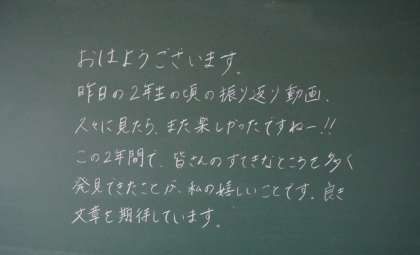 おはようございます。
昨日の2年生の頃の振り返り動画、
久々に見たら、また楽しかったですねー!!
この2年間で、皆さんのすてきなところを多く
発見できたことが、私の嬉しいことです。良き
文章を期待しています。